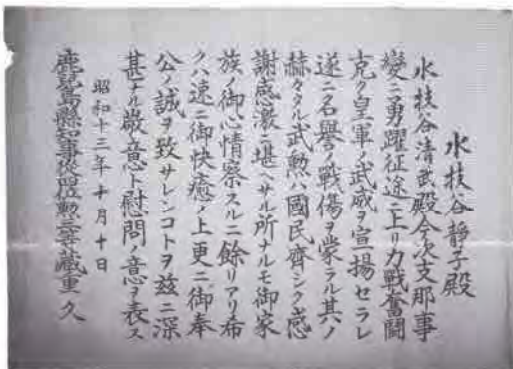 水枝谷靜子殿
水枝谷清武殿今次支那事
變ニ勇躍征途ニ上リ力戰奮鬪
克ク皇軍ノ武威ヲ宣揚セラレ
遂ニ名譽ノ戰傷ヲ蒙ラル其ノ
赫々タル武勲ハ國民齊シク感
謝感激ニ堪ヘサル所ナルモ御家
族ノ御心情察スルニ餘リアリ希
クハ速ニ御快癒ノ上更ニ御奉
公ノ誠ヲ致サレンコトヲ茲ニ深
甚ナル敬意ト慰問ノ意ヲ表ス
昭和十三年十月十日
鹿兒島縣知事從四位勲三等藏重久